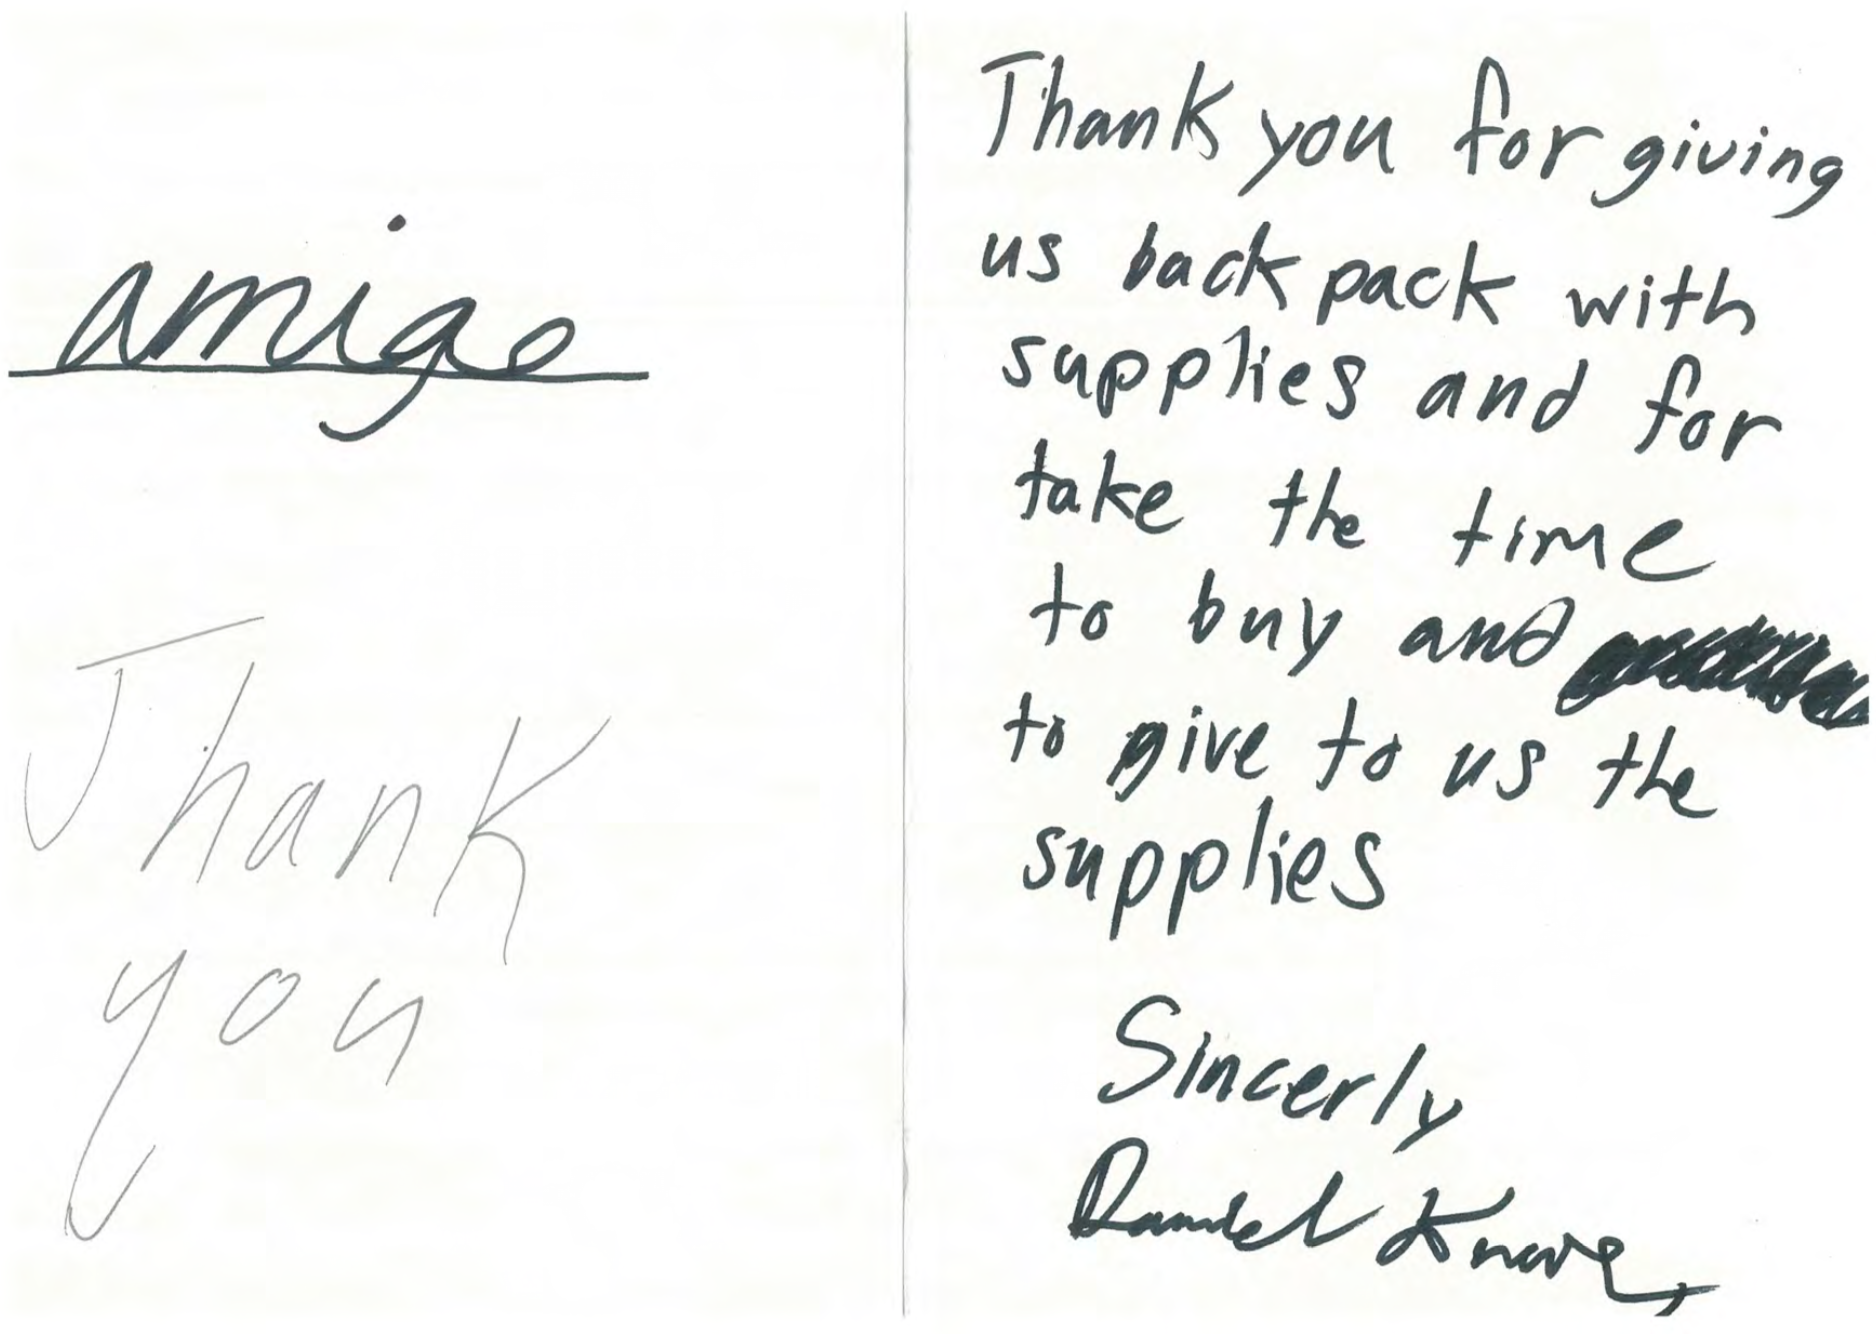 amigo
Thank
you
Thank you for giving
us back pack with
supplies and for
take the time
to buy and
to give to us the
supplies
Sincerly
Daniel